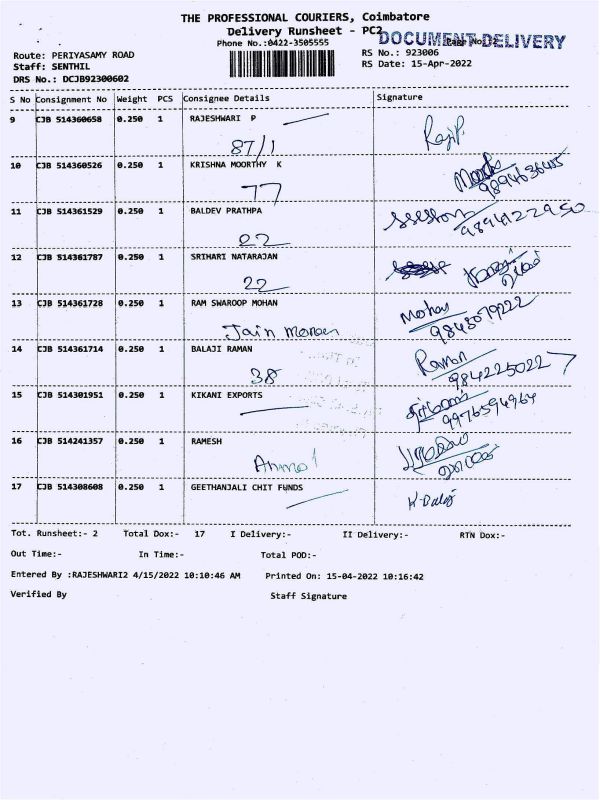 THE PROFESSIONAL COURIERS, Coimbatore
Delivery Runsheet - PC2
DOCUMENT DELIVERY
Phone No.:0422-3505555
Route: PERIYASAMY ROAD
RS No.: 923006
Staff: SENTHIL
RS Date: 15-Apr-2022
DRS No.: DCJB92300602
S No Consignment No Weight PCS Consignee Details Signature
9 CJB 514360658 0.250 1 RAJESHWARI P
87/1
10 CJB 514360526 0.250 1 KRISHNA MOORTHY K
77
9894636405
11 CJB 514361529 0.250 1 BALDEV PRATHPA
22
9894122950
12 CJB 514361787 0.250 1 SRIHARI NATARAJAN
22
13 CJB 514361728 0.250 1 RAM SWAROOP MOHAN Mohan
Jain 9843079222
14 CJB 514361714 0.250 1 BALAJI RAMAN Raman
38 984225022
15 CJB 514301951 0.250 1 KIKANI EXPORTS
9976594964
16 CJB 514241357 0.250 1 RAMESH
17 CJB 514308608 0.250 1 GEETHANJALI CHIT FUNDS
Tot. Runsheet:- 2 Total Dox:- 17 I Delivery:- II Delivery:- RTN Dox:-
Out Time:- In Time:- Total POD:-
Entered By :RAJESHWARI2 4/15/2022 10:10:46 AM Printed On: 15-04-2022 10:16:42
Verified By Staff Signature